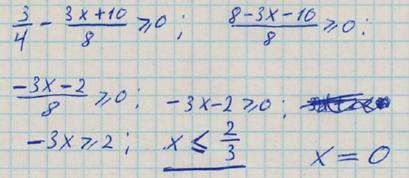 3/4 - (3x+10)/8 ≥ 0; (8-3x-10)/8 ≥ 0;
(-3x-2)/8 ≥ 0; -3x-2 ≥ 0;
-3x ≥ 2; x ≤ 2/3 x = 0